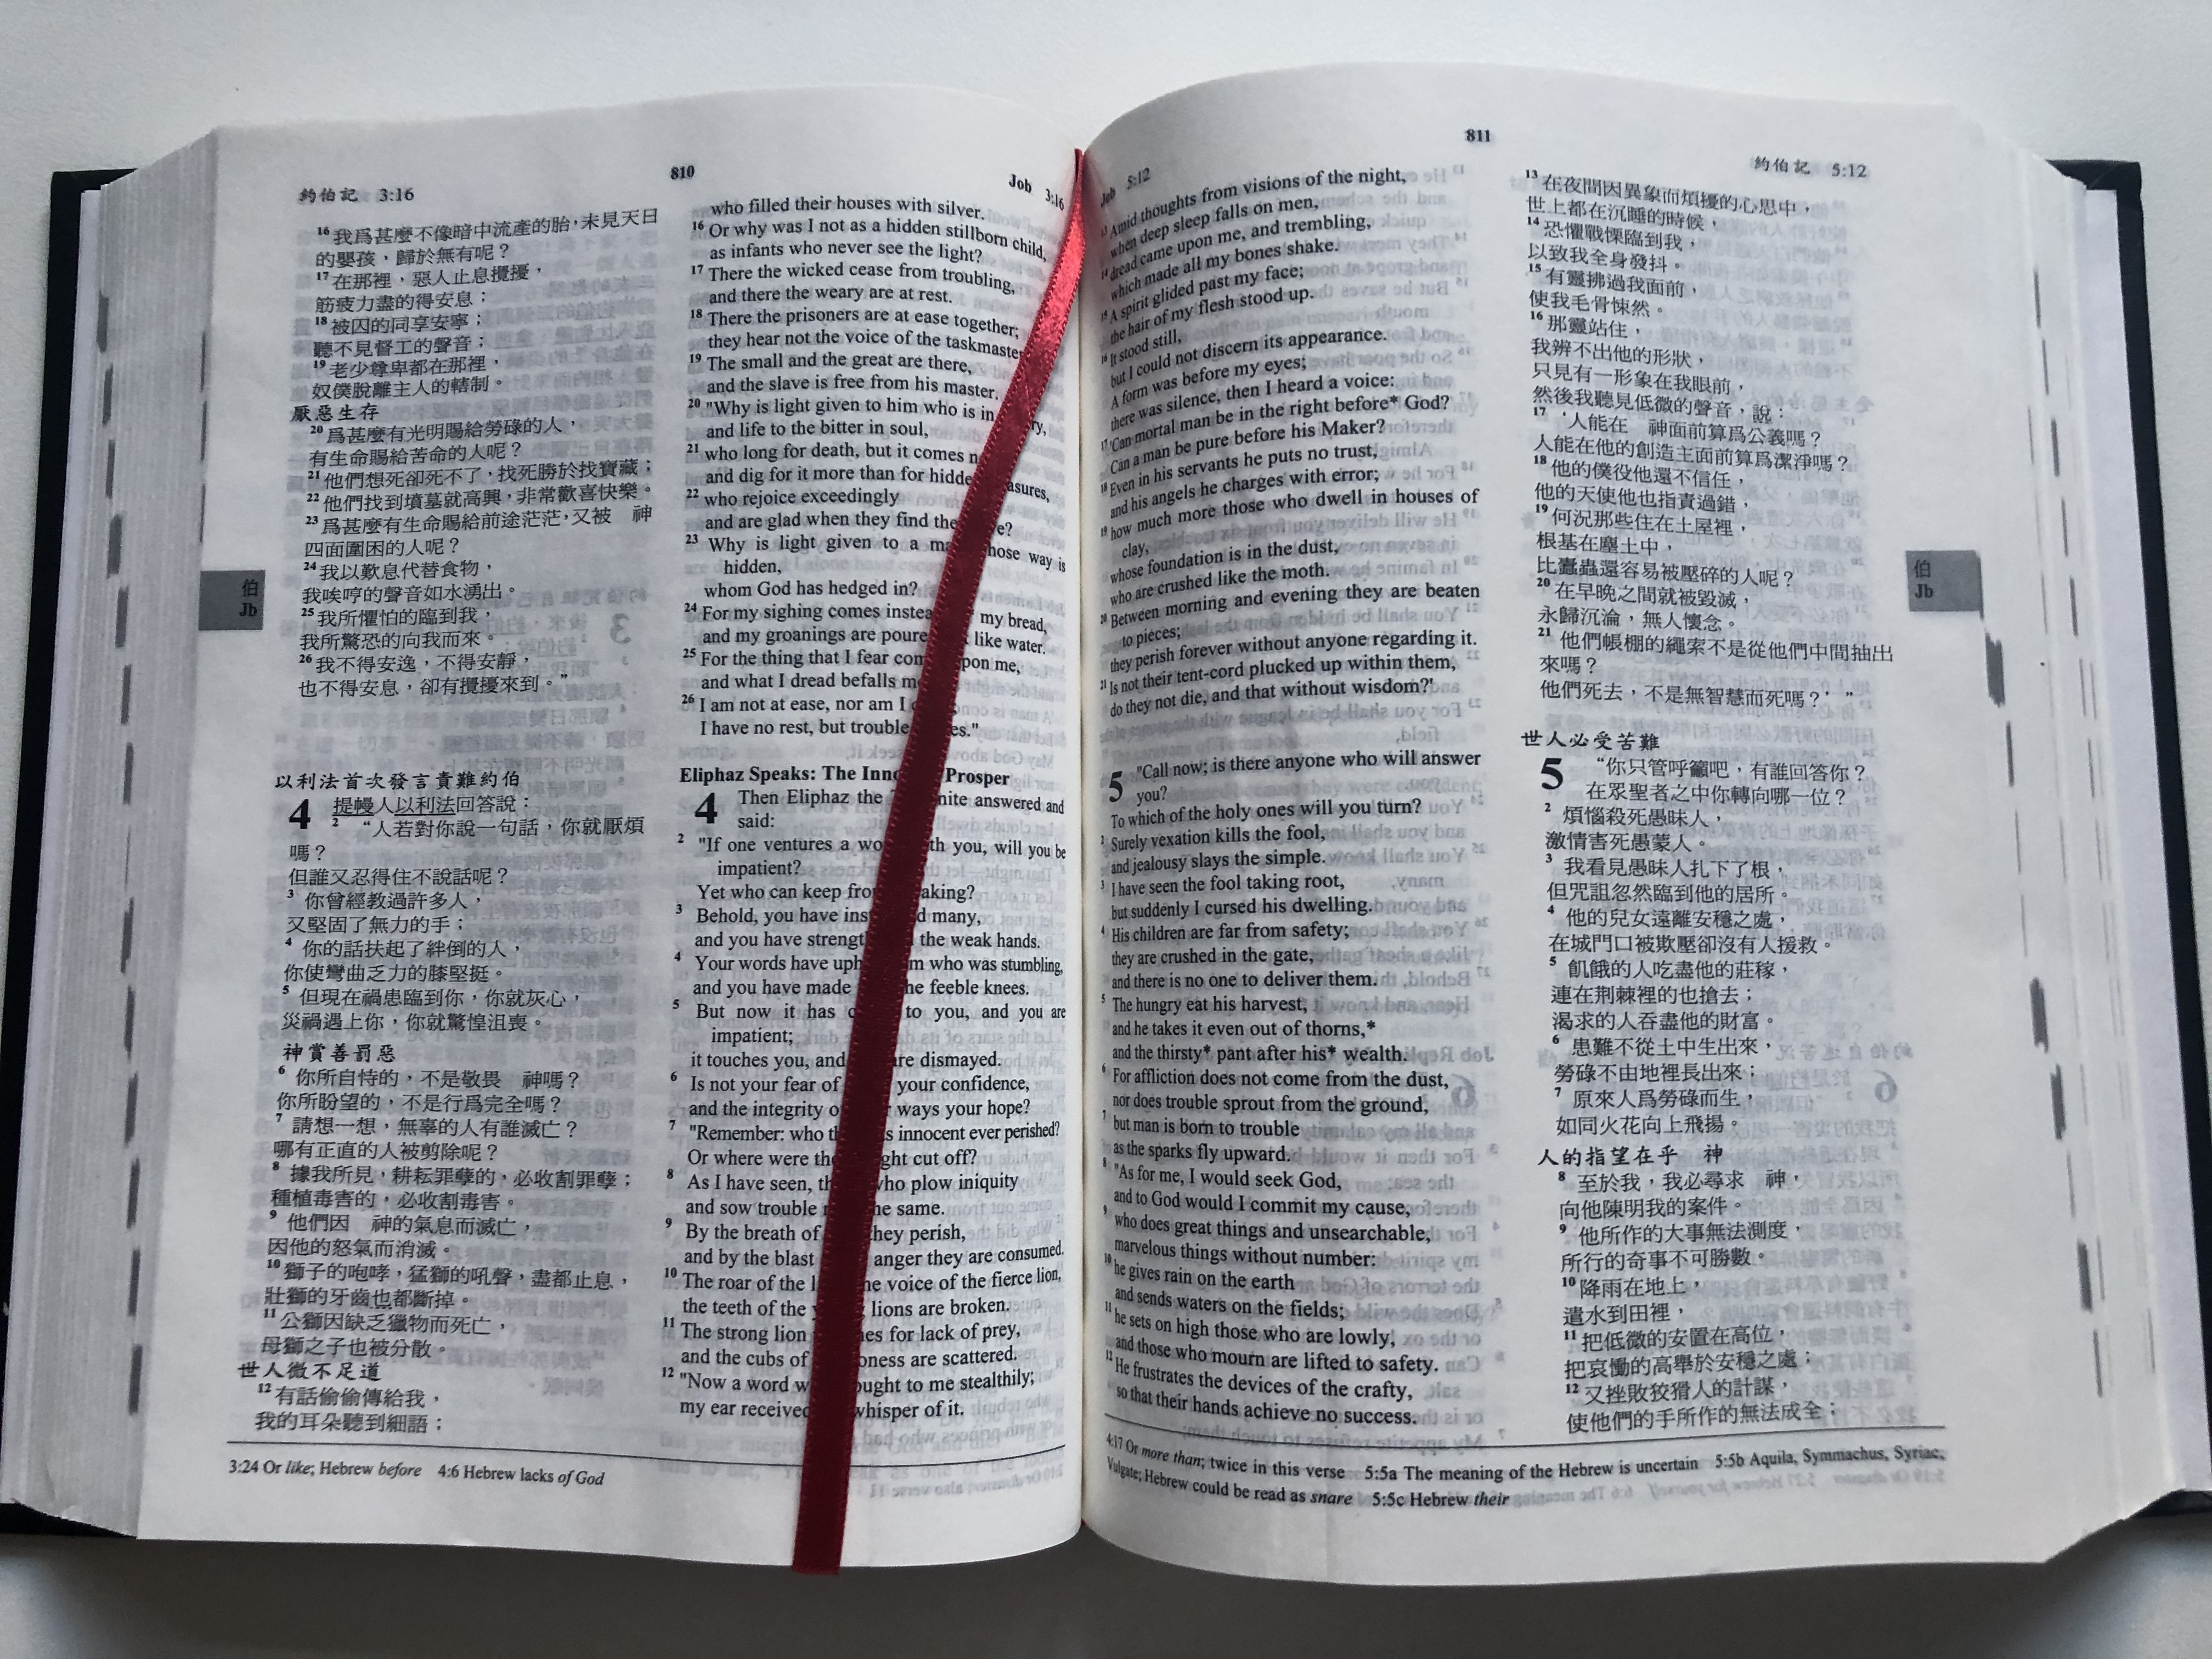 810
約伯記 3:16
16 我爲甚麼不像暗中流產的胎，未見天日
的嬰孩，歸於無有呢？
17 在那裡，惡人止息攪擾，
筋疲力盡的得安息；
18 被囚的同享安寧；
聽不見督工的聲音；
19 老少尊卑都在那裡，
奴僕脫離主人的轄制。
厭惡生存
20 爲甚麼有光明賜給勞碌的人，
有生命賜給苦命的人呢？
21 他們想死卻死不了，找死勝於找寶藏；
22 他們找到墳墓就高興，非常歡喜快樂。
23 爲甚麼有生命賜給前途茫茫，又被　神
四面圍困的人呢？
24 我以歎息代替食物，
我唉哼的聲音如水湧出。
25 我所懼怕的臨到我，
我所驚恐的向我而來。
26 我不得安逸，不得安靜，
也不得安息，卻有攪擾來到。”
以利法首次發言責難約伯
4 提幔人以利法回答說：
2 “人若對你說一句話，你就厭煩
嗎？
但誰又忍得住不說話呢？
3 你曾經教過許多人，
又堅固了無力的手；
4 你的話扶起了絆倒的人，
你使彎曲乏力的膝堅挺。
5 但現在禍患臨到你，你就灰心，
災禍遇上你，你就驚惶沮喪。
神賞善罰惡
6 你所自恃的，不是敬畏　神嗎？
你所盼望的，不是行爲完全嗎？
7 請想一想，無辜的人有誰滅亡？
哪有正直的人被剪除呢？
8 據我所見，耕耘罪孽的，必收割罪孽；
種植毒害的，必收割毒害。
9 他們因　神的氣息而滅亡，
因他的怒氣而消滅。
10 獅子的咆哮，猛獅的吼聲，盡都止息，
壯獅的牙齒也都斷掉。
11 公獅因缺乏獵物而死亡，
母獅之子也被分散。
世人微不足道
12 有話偷偷傳給我，
我的耳朵聽到細語；
伯
Jb
Job 3:16
who filled their houses with silver.
16 Or why was I not as a hidden stillborn child,
as infants who never see the light?
17 There the wicked cease from troubling,
and there the weary are at rest.
18 There the prisoners are at ease together;
they hear not the voice of the taskmaster
19 The small and the great are there,
and the slave is free from his master.
20 "Why is light given to him who is in
and life to the bitter in soul,
21 who long for death, but it comes
and dig for it more than for
22 who rejoice exceedingly
and are glad when they find the
23 Why is light given to a whose way is
hidden,
whom God has hedged in?
24 For my sighing comes my bread,
and my groanings are like water.
25 For the thing that I fear upon me,
and what I dread befalls
26 I am not at ease, nor am I
I have no rest, but trouble
Eliphaz Speaks: The Prosper
4 Then Eliphaz the answered and
said:
2 "If one ventures a with you, will you be
impatient?
Yet who can keep
3 Behold, you have many,
and you have the weak hands.
4 Your words have who was stumbling,
and you have made the feeble knees.
5 But now it has to you, and you are
impatient;
it touches you, and are dismayed.
6 Is not your fear of your confidence,
and the integrity ways your hope?
7 "Remember: who innocent ever perished?
Or where were cut off?
8 As I have seen, who plow iniquity
and sow trouble same.
9 By the breath of they perish,
and by the blast anger they are consumed.
10 The roar of the voice of the fierce lion,
the teeth of the lions are broken.
11 The strong lion for lack of prey,
and the cubs of are scattered.
12 "Now a word to me stealthily;
my ear received whisper of it.
3:24 Or like; Hebrew before 4:6 Hebrew lacks of God
811
Job 5:12
13 Amid thoughts from visions of the night,
when deep sleep falls on men,
14 dread came upon me, and trembling,
which made all my bones shake.
15 A spirit glided past my face;
the hair of my flesh stood up.
16 It stood still,
but I could not discern its appearance.
A form was before my eyes;
there was silence, then I heard a voice:
17 'Can mortal man be in the right before* God?
Can a man be pure before his Maker?
18 Even in his servants he puts no trust,
and his angels he charges with error;
19 how much more those who dwell in houses of
clay,
whose foundation is in the dust,
who are crushed like the moth.
20 Between morning and evening they are beaten
to pieces;
they perish forever without anyone regarding it.
21 Is not their tent-cord plucked up within them,
do they not die, and that without wisdom?'
5 "Call now; is there anyone who will answer
you?
To which of the holy ones will you turn?
2 Surely vexation kills the fool,
and jealousy slays the simple.
3 I have seen the fool taking root,
but suddenly I cursed his dwelling.
4 His children are far from safety;
they are crushed in the gate,
and there is no one to deliver them.
5 The hungry eat his harvest,
and he takes it even out of thorns,*
and the thirsty* pant after his* wealth.
6 For affliction does not come from the dust,
nor does trouble sprout from the ground,
7 but man is born to trouble
as the sparks fly upward.
8 "As for me, I would seek God,
and to God would I commit my cause,
9 who does great things and unsearchable,
marvelous things without number:
10 he gives rain on the earth
and sends waters on the fields;
11 he sets on high those who are lowly,
and those who mourn are lifted to safety.
12 He frustrates the devices of the crafty,
so that their hands achieve no success.
約伯記 5:12
13 在夜間因異象而煩擾的心思中，
世上都在沉睡的時候，
14 恐懼戰慄臨到我，
以致我全身發抖。
15 有靈拂過我面前，
使我毛骨悚然。
16 那靈站住，
我辨不出他的形狀，
只見有一形象在我眼前，
然後我聽見低微的聲音，說：
17 ‘人能在　神面前算爲公義嗎？
人能在他的創造主面前算爲潔淨嗎？
18 他的僕役他還不信任，
他的天使他也指責過錯，
19 何況那些住在土屋裡，
根基在塵土中，
比蠹蟲還容易被壓碎的人呢？
20 在早晚之間就被毀滅，
永歸沉淪，無人懷念。
21 他們帳棚的繩索不是從他們中間抽出
來嗎？
他們死去，不是無智慧而死嗎？’”
世人必受苦難
5 “你只管呼籲吧，有誰回答你？
在眾聖者之中你轉向哪一位？
2 煩惱殺死愚昧人，
激情害死愚蒙人。
3 我看見愚昧人扎下了根，
但咒詛忽然臨到他的居所。
4 他的兒女遠離安穩之處，
在城門口被欺壓卻沒有人援救。
5 飢餓的人吃盡他的莊稼，
連在荆棘裡的也搶去；
渴求的人吞盡他的財富。
6 患難不從土中生出來，
勞碌不由地裡長出來；
7 原來人爲勞碌而生，
如同火花向上飛揚。
人的指望在乎　神
8 至於我，我必尋求　神，
向他陳明我的案件。
9 他所作的大事無法測度，
所行的奇事不可勝數。
10 降雨在地上，
遣水到田裡，
11 把低微的安置在高位，
把哀慟的高舉於安穩之處；
12 又挫敗狡猾人的計謀，
使他們的手所作的無法成全；
伯
Jb
4:17 Or more than; twice in this verse 5:5a The meaning of the Hebrew is uncertain 5:5b Aquila, Symmachus, Syriac,
Vulgate; Hebrew could be read as snare 5:5c Hebrew their